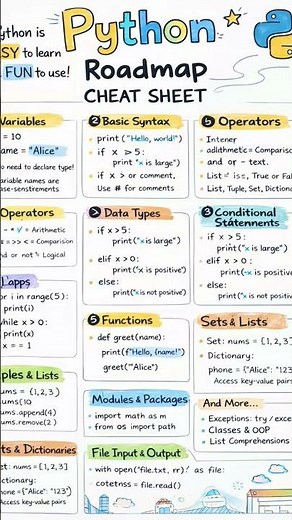 ython is
SY to learn
FUN to use!
Python
Roadmap
CHEAT SHEET
Variables
= 10
name = "Alice"
o need to declare type!
ariable names are
se-senstrements
Operators
= Arithmetic
= >> < = Comparison
nd or not
Logical
L'apps
r i in range(5):
print(i)
while x > 0:
print(x)
x == 1
ples & Lists
ums = {1,2,3}
ums(10
ums.append(4)
ums.remove(2)
ts & Dictionaries
et: nums = [1,2,3]
ctionary:
phone ={"Alice": "123"}
Access key-value pairs
2 Basic Syntax
print ("Hello, world!")
if x > 5:
print "x is large")
if x > or comment,
Use # for comments
> Data Types
if x>5:
print("x is large")
elif x> 0:
print("x is positive")
else:
print("x is not positive")
5 Functions
def greet(name):
print(f"Hello, {name!")
greet("'Alice")
Modules & Packages
import math as m
from os import path
File Input & Output
with open("file.txt, rr)! as file:
cotetnss = file.read()
5 Operators
Intener
adlithmetic = Comparison
and or - text.
List = is=, True or Fal
List, Tuple, Set, Dictiona
3 Conditional
Statennents
if x > 5:
print("x is large")
elif x > 0:
print(-x is positive")
else:
print("x is not positive")
Sets & Lists
Set: nums = {1,2,3]
Dictionary:
phone = {"Alice: "123"
Access key-value pairs
And More...
Exceptions: try / except
Classes & OOP
List Comprehensions